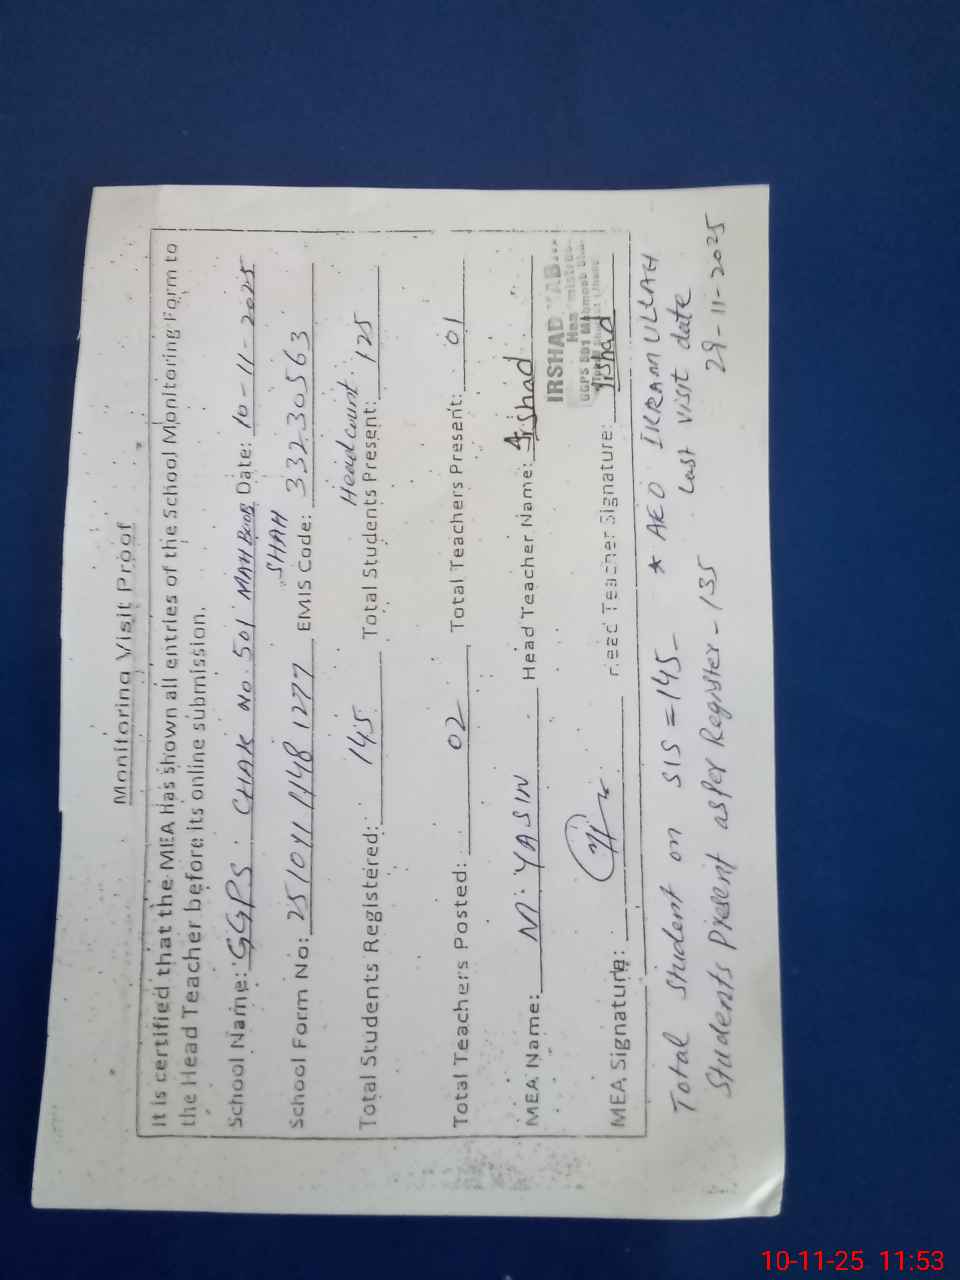 Monitoring Visit Proof
It is certified that the MEA has shown all entries of the School Monitoring Form to
the Head Teacher before its online submission.
School Name: GGPS. CHAK No. 501 MAHBOOB SHAH Date: 10-11-2025
School Form No: EMIS Code: 33230563
Total Students Registered: 145 Total Students Present: Headcount. 125
Total Teachers Posted: 02 Total Teachers Present: 01
MEA Name: M. YASIN Head Teacher Name: Irshad
MEA Signature: Head Teacher Signature: Irshad
IRSHAD
GGPS 501 Mahmoob Sha
Total Student on SIS = 145- * AEO IKRAMULLAH
Students Present as per Register - 135 Last visit date
29-11-2025
10-11-25 11:53